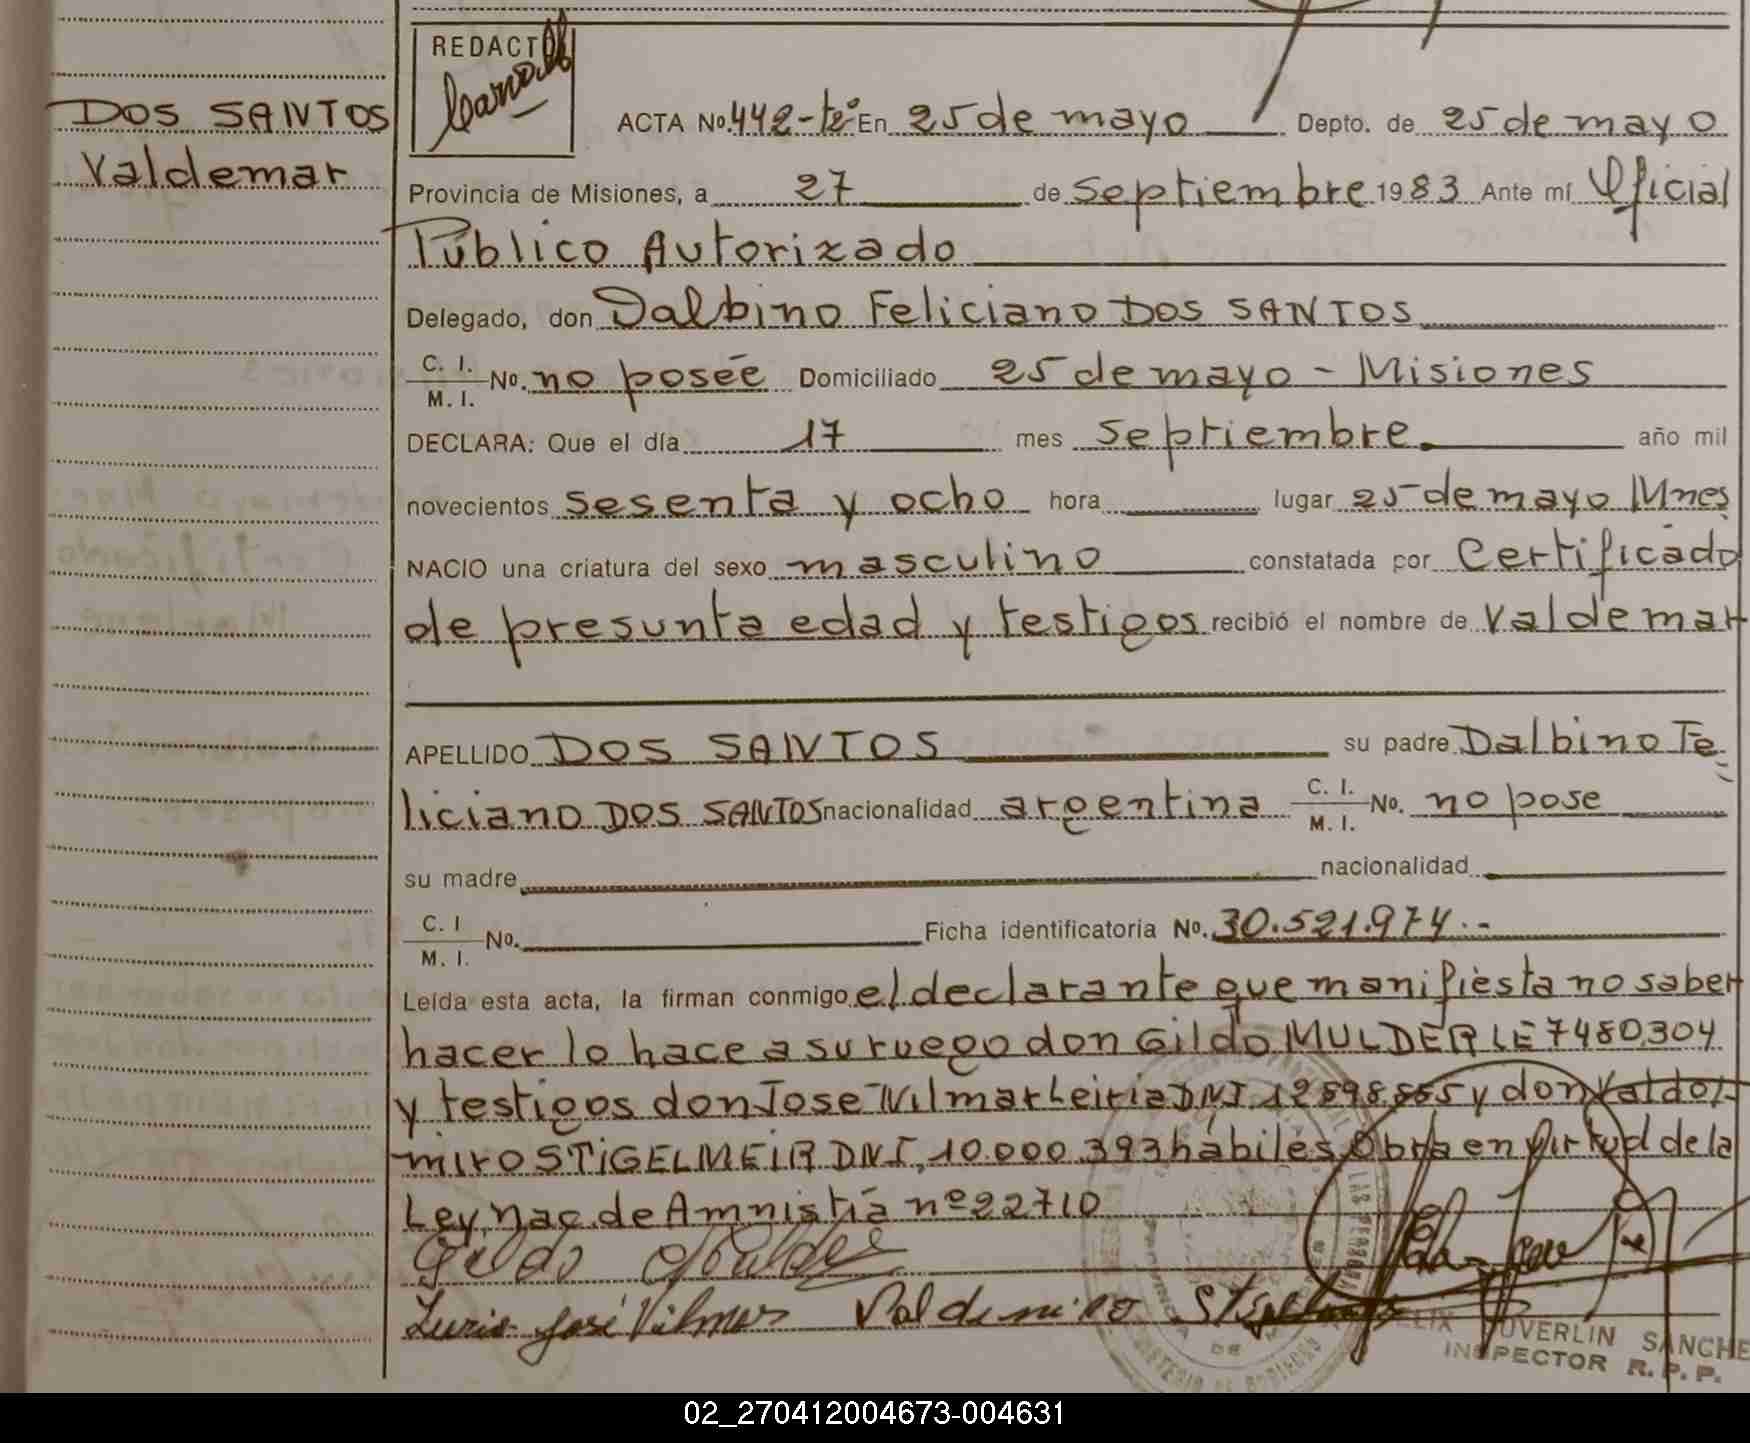 REDACTO
DOS SANTOS
Valdemar
ACTA No. 442-tº En 25 de mayo Depto. de 25 de mayo
Provincia de Misiones, a 27 de Septiembre 1983 Ante mí Oficial
Público Autorizado
Delegado, don Dalbino Feliciano DOS SANTOS
C. I.
M. I. No. no posée Domiciliado 25 de mayo - Misiones
DECLARA: Que el día 17 mes Septiembre. año mil
novecientos sesenta y ocho hora lugar 25 de mayo Mnes
NACIO una criatura del sexo masculino constatada por Certificado
de presunta edad y testigos recibió el nombre de Valdemar
APELLIDO DOS SANTOS su padre Dalbino Fe
liciano DOS SANTOS nacionalidad argentina C. I. M. I. No. no pose
su madre nacionalidad
C. I
M. I. No. Ficha identificatoria No. 30.521.974.-
Leída esta acta, la firman conmigo el declarante que manifiesta no saber
hacer lo hace a su ruego don Gildo MULDER LE 7480.304
y testigos don Jose Wilmar Leiria DNI 12898.885 y don Valdo
miro STIGELMEIR DNI, 10.000.393 hábiles. Obra en virtud de la
Ley Nac. de Amnistía nº 22710
Gildo Mulder
José Vilmar Valdemiro
UVERLIN SANCHE
INSPECTOR R. P. P.
02_270412004673-004631